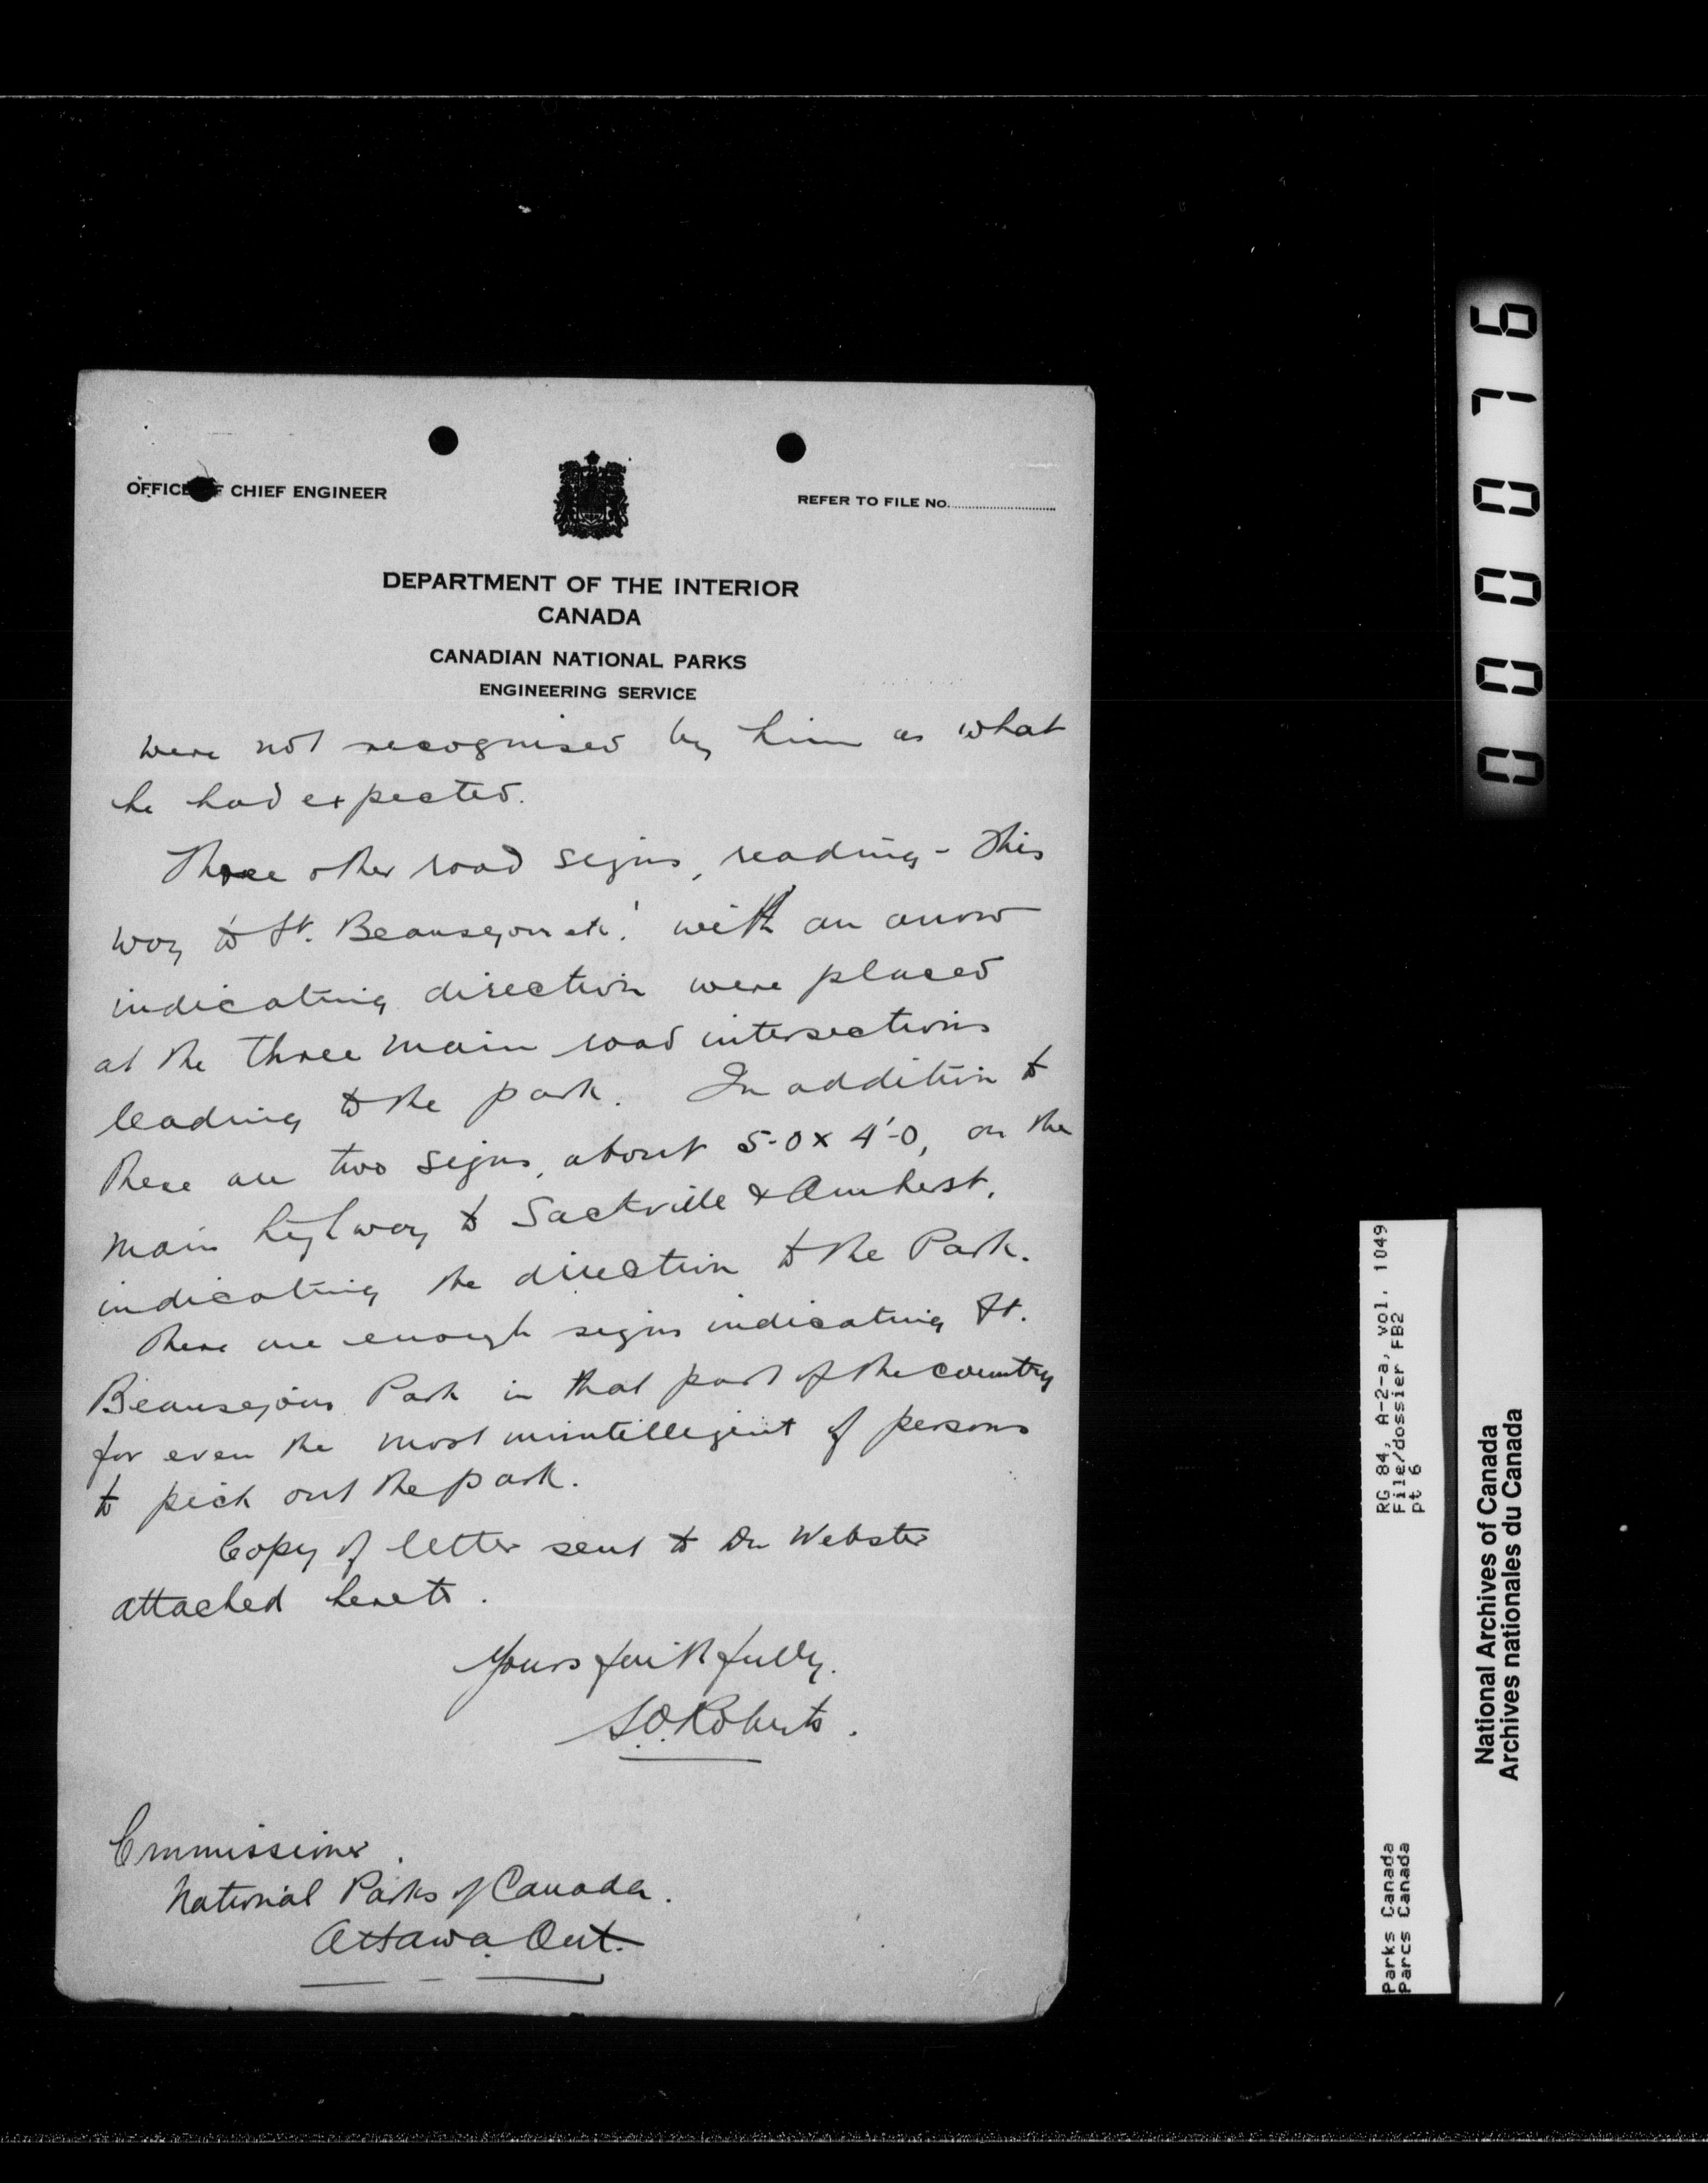 OFFICE OF CHIEF ENGINEER
REFER TO FILE No.
DEPARTMENT OF THE INTERIOR
CANADA
CANADIAN NATIONAL PARKS
ENGINEERING SERVICE
were not recognised by him as what
he had expected.
Three other road signs, reading - This
way to Ft. Beausejour etc.' with an arrow
indicating direction were placed
at the three main road intersections
leading to the park. In addition to
these are two signs, about 5-0 x 4'-0, on the
main highway to Sackville & Amherst,
indicating the direction to the Park.
There are enough signs indicating Ft.
Beausejour Park in that part of the country
for even the most unintelligent of persons
to pick out the park.
Copy of letter sent to Dr Webster
attached hereto.
Yours faithfully.
S.O. Roberts.
Commissioner.
National Parks of Canada.
Ottawa. Ont.
000076
RG 84, A-2-a, vol. 1049
File/dossier FB2
pt 6
Parks Canada
Parcs Canada
National Archives of Canada
Archives nationales du Canada